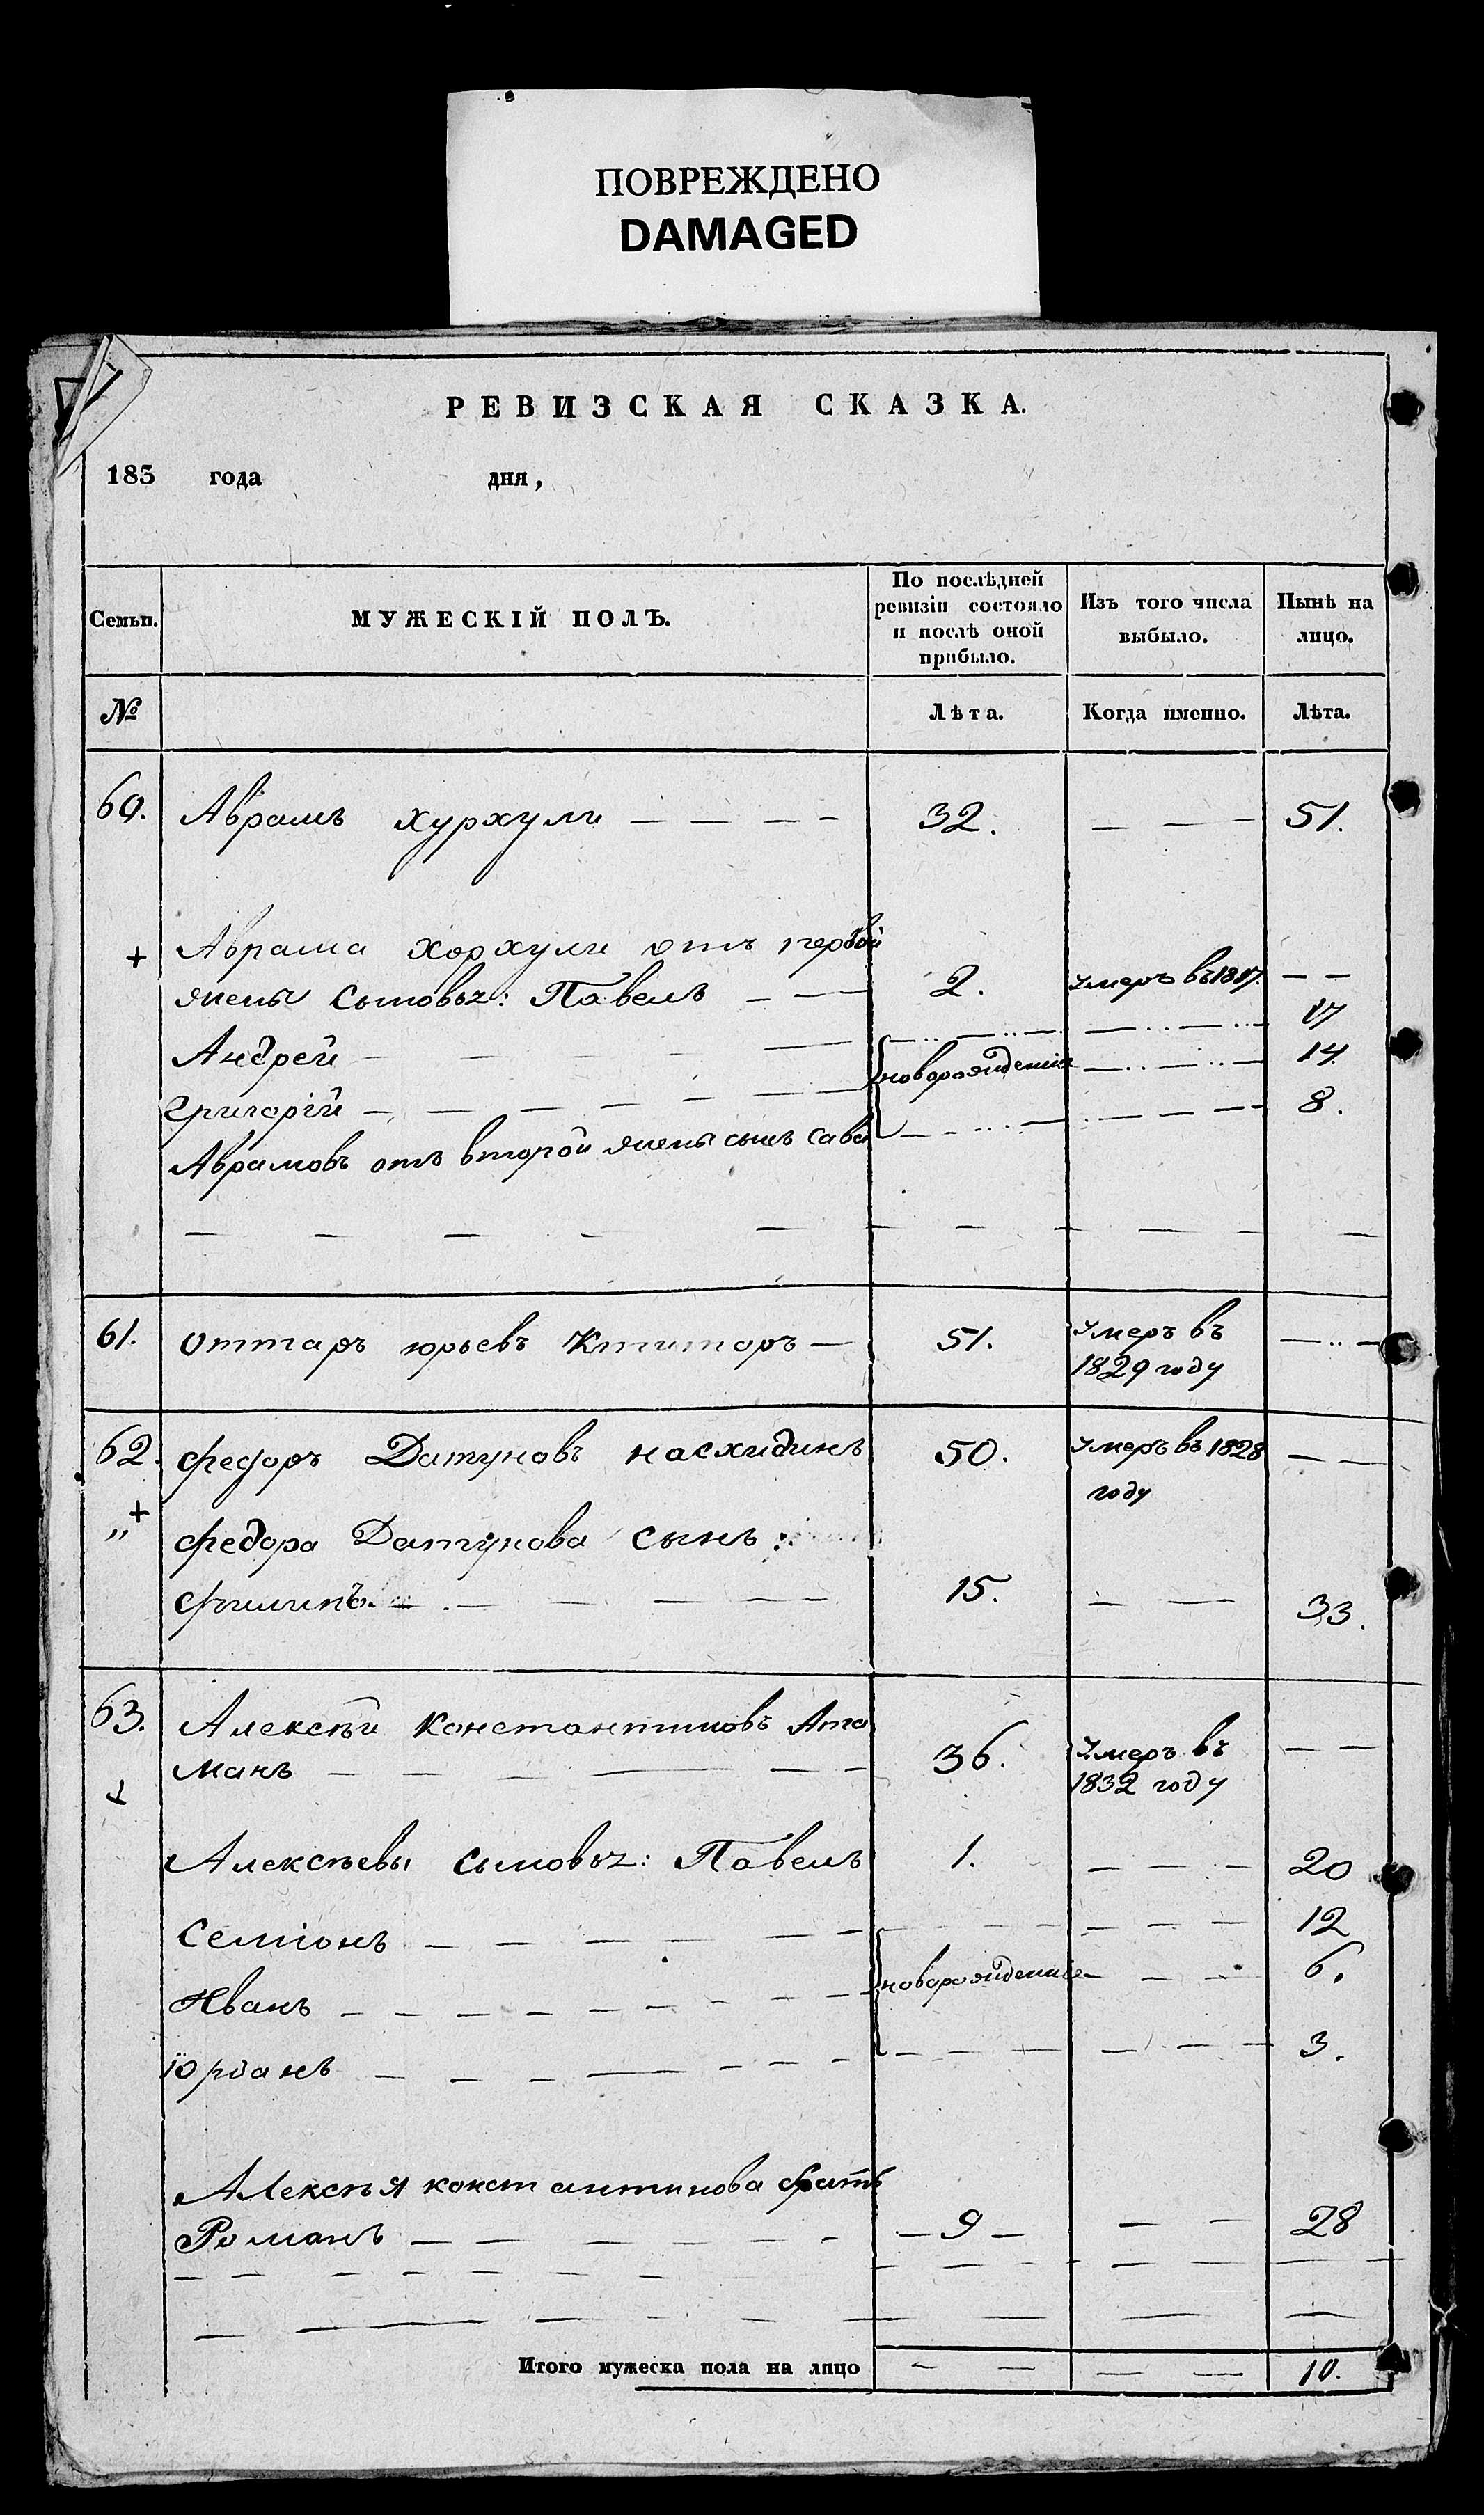 ПОВРЕЖДЕНО
DAMAGED
РЕВИЗСКАЯ СКАЗКА.
183 года дня,
Семьи. МУЖЕСКІЙ ПОЛЪ. По послѣдней ревизіи состояло и послѣ оной прибыло. Изъ того числа выбыло. Нынѣ на лицо.
№ Лѣта. Когда именно. Лѣта.
60. Аврамъ хурхули — — — — 32. — — — 51.
+ Аврама хорхули отъ первой
жены сыновья: Павелъ — — — 2. умеръ въ 1817. — —
Андрей — — — — — 17
Григорій — — — — — — новорожденніе — — 14
Аврамовъ отъ второй жены сынъ Сава — — — 8.
61. оттаръ юрьевъ Ктиторъ — 51. умеръ въ
1829 году — —
62. федоръ Датуновъ насхидинъ 50. умеръ въ 1828 — —
году
„ + федора Датунова сынъ:
филипъ — — — — — 15. — — 33.
63. Алексѣй Константиновъ Ата
манъ — — — — — — 36. умеръ въ — —
1832 году
Алексѣевы сыновья: Павелъ 1. — — — 20
Семіонъ — — — — — — — — 12
Иванъ — — — — — новорожденніе — — — 6.
Юрданъ — — — — — — — — 3.
Алексѣя константинова братъ
Романъ — — — — — — 9 — — — 28
Итого мужеска пола на лицо — — — — 10.